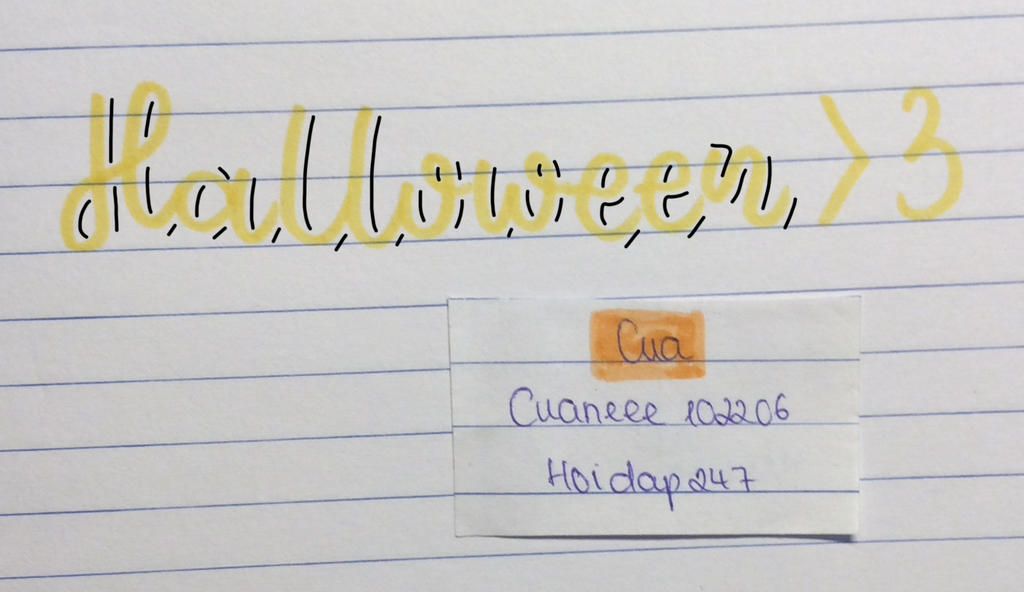 Halloween >3
Cua
Cuaneee 102206
Hoidap247